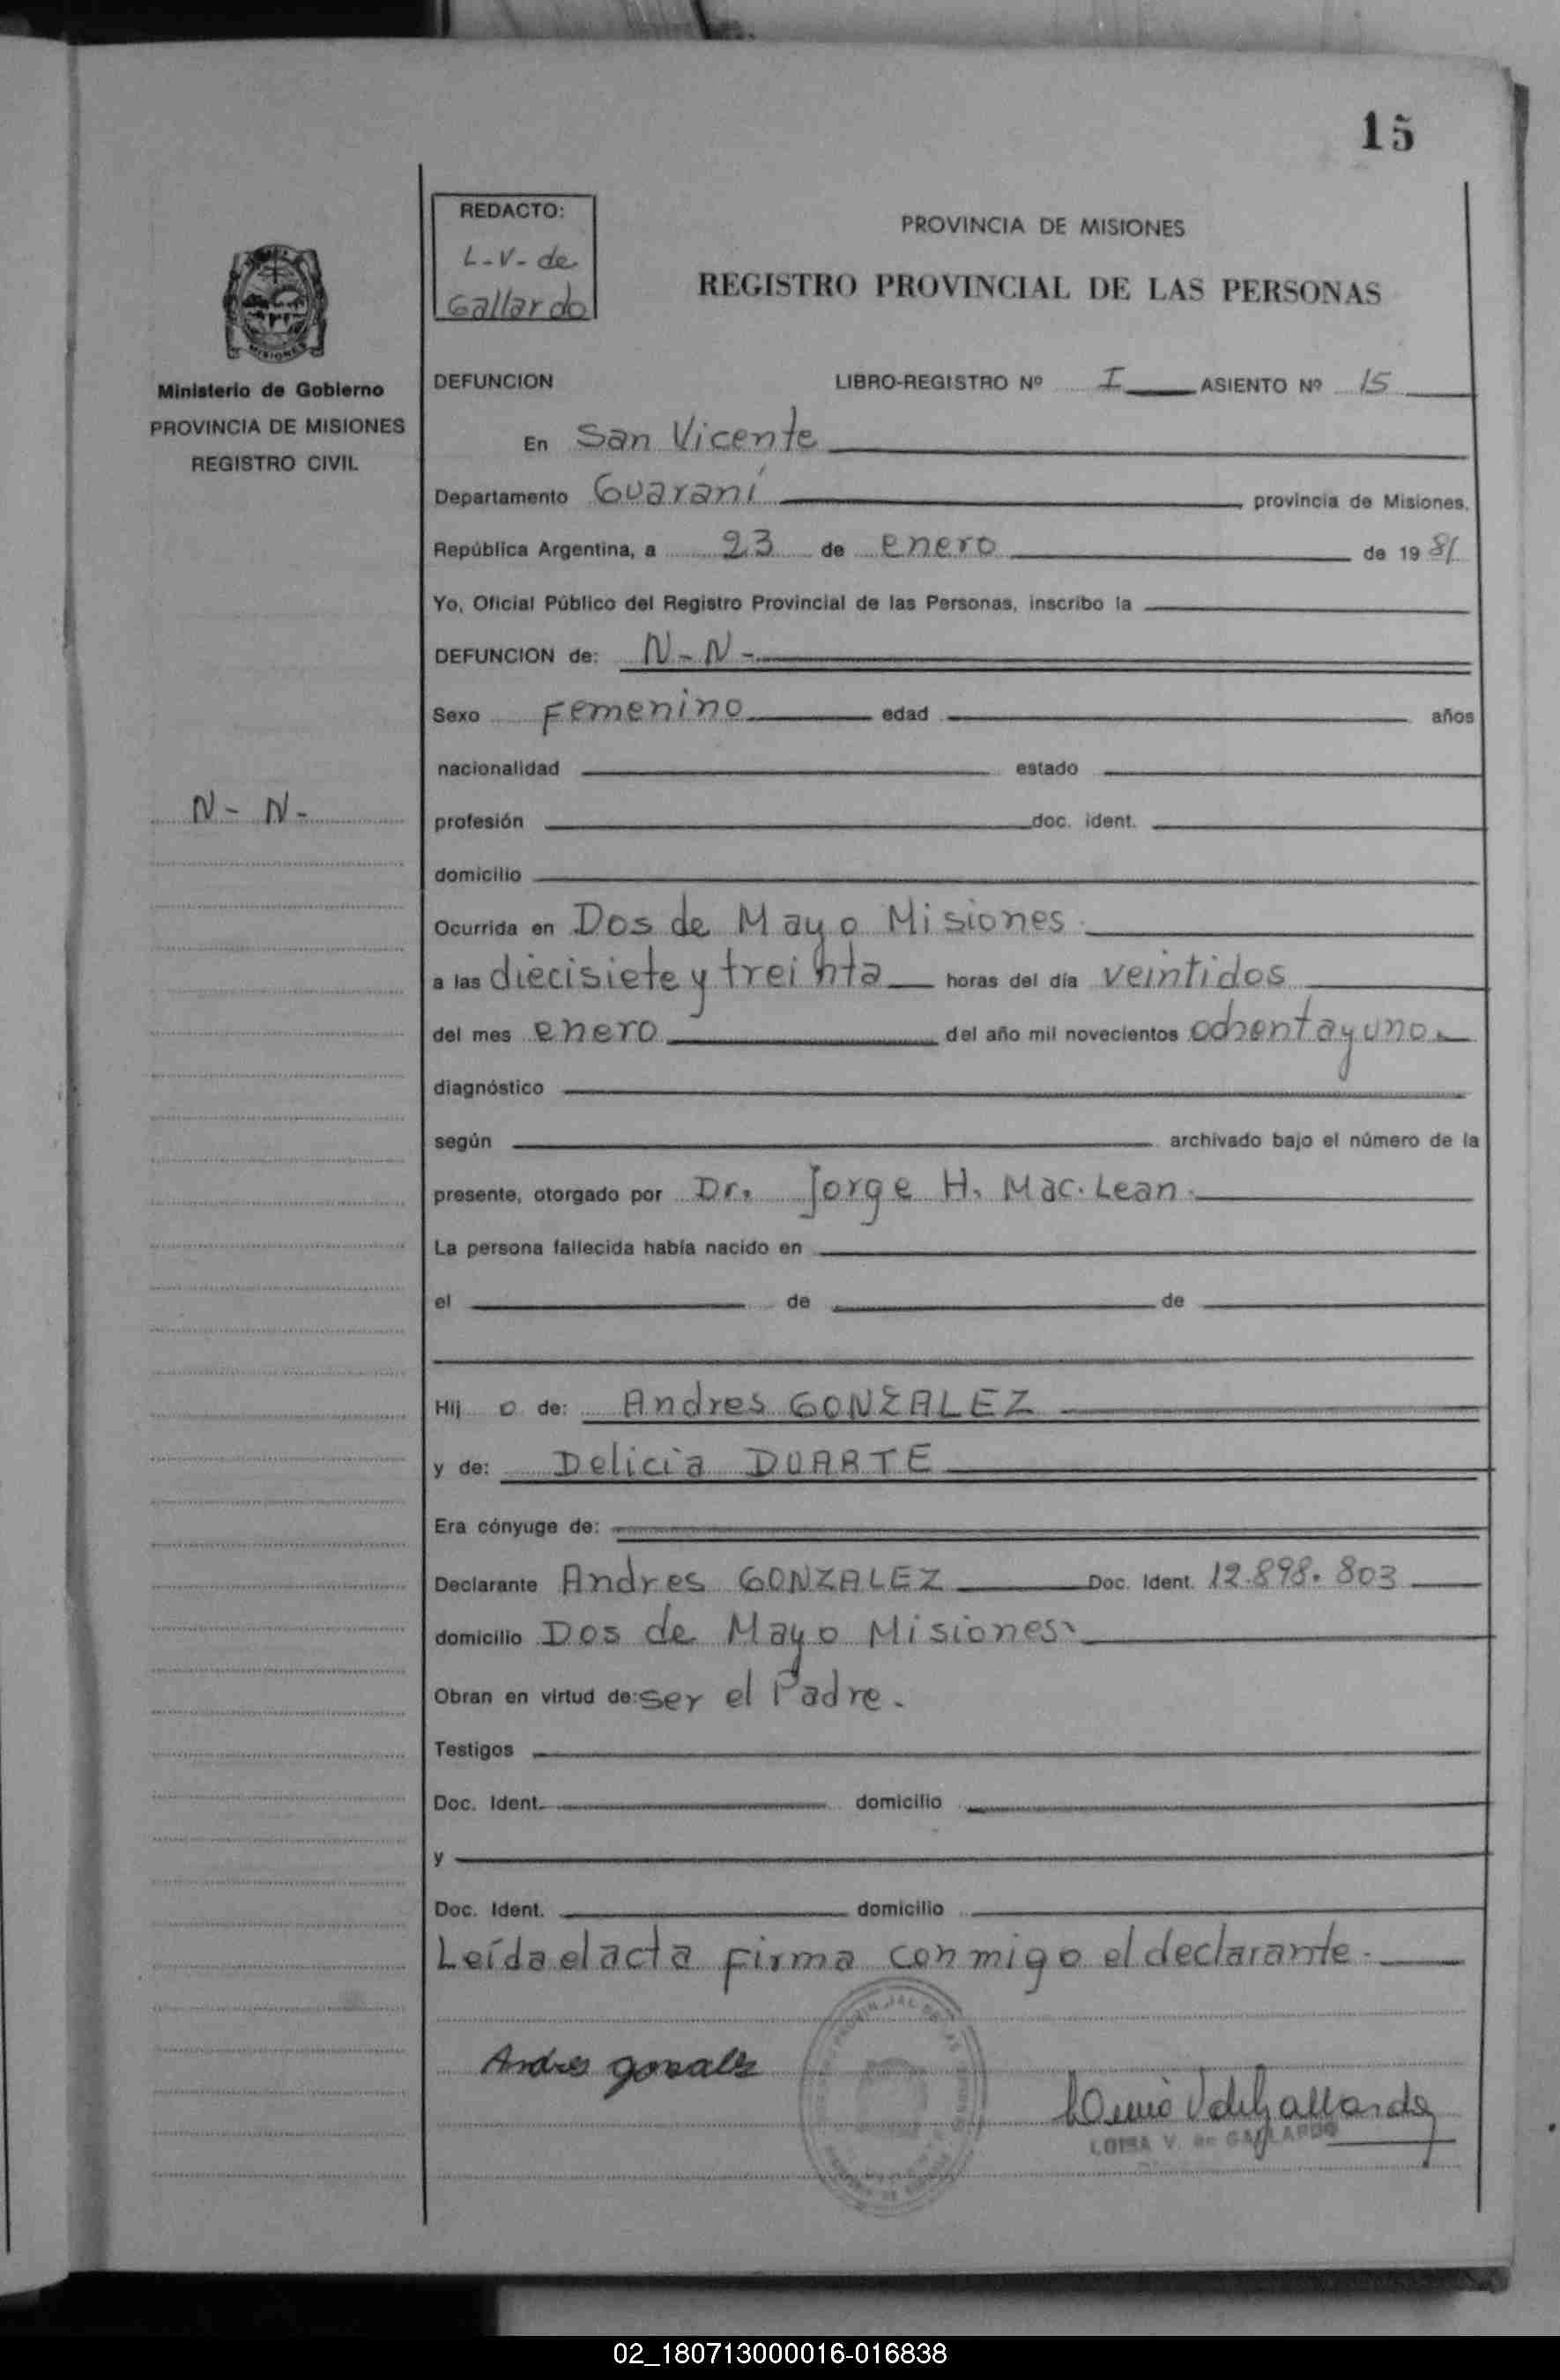 15
REDACTO:
L-V- de
Gallardo
PROVINCIA DE MISIONES
REGISTRO PROVINCIAL DE LAS PERSONAS
MISIONES
Ministerio de Gobierno
PROVINCIA DE MISIONES
REGISTRO CIVIL
DEFUNCION LIBRO-REGISTRO Nº I ASIENTO Nº 15
En San Vicente
Departamento Guaraní provincia de Misiones,
República Argentina, a 23 de enero de 1981
Yo, Oficial Público del Registro Provincial de las Personas, inscribo la
DEFUNCION de: N-N-
Sexo Femenino edad años
nacionalidad estado
N- N-
profesión doc. ident.
domicilio
Ocurrida en Dos de Mayo Misiones
a las diecisiete y treinta horas del día veintidos
del mes enero del año mil novecientos ochentayuno
diagnóstico
según archivado bajo el número de la
presente, otorgado por Dr. Jorge H. Mac. Lean.
La persona fallecida había nacido en
el de de
Hij o de: Andres GONZALEZ
y de: Delicia DUARTE
Era cónyuge de:
Declarante Andres GONZALEZ Doc. Ident. 12.898.803
domicilio Dos de Mayo Misiones
Obran en virtud de: ser el Padre.
Testigos
Doc. Ident. domicilio
y
Doc. Ident. domicilio
Leída el acta firma conmigo el declarante.
Andres gonzales
V de Gallardo
LUISA V. de GALLARDO
02_180713000016-016838